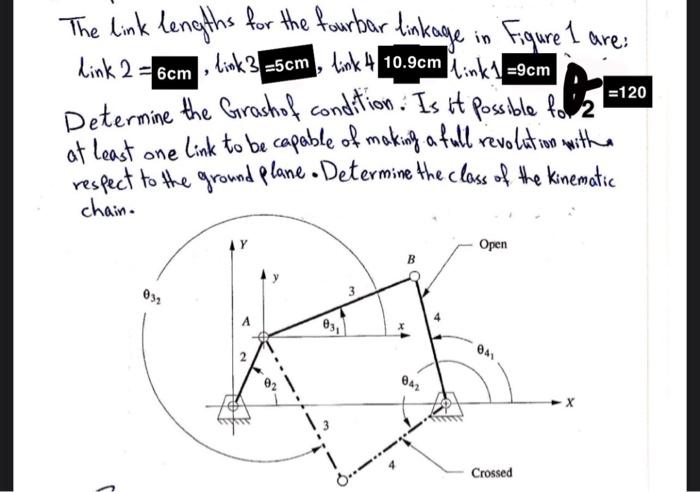 The link lengths for the fourbar linkage in Figure 1 are:
Link 2 = 6cm , link 3 =5cm , link 4 10.9cm link 1 =9cm
Determine the Grashof condition. Is it possible for θ2 =120
at least one link to be capable of making a full revolution with a
respect to the ground plane. Determine the class of the kinematic
chain.
Y
Open
B
y
θ32
3
A
θ31
x
4
2
θ41
θ2
θ42
X
3
4
Crossed